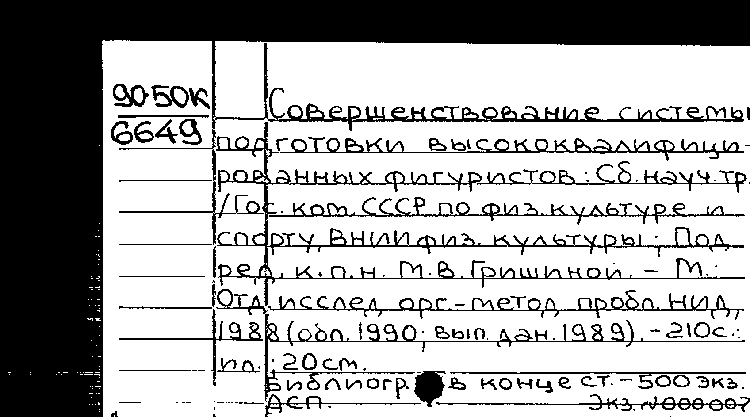 90-50К
6649
Совершенствование системы
подготовки высококвалифици-
рованных фигуристов: Сб. науч. тр.
/Гос. ком. СССР по физ. культуре и
спорту, ВНИИ физ. культуры; Под
ред. к.п.н. М.В. Гришиной. - М.:
Отд. исслед. орг.-метод. пробл. НИД,
1988 (обл. 1990; вып. дан. 1989). - 210с.:
ил.; 20см.
Библиогр. в конце ст. - 500 экз.
ДСП. Экз. N 000007